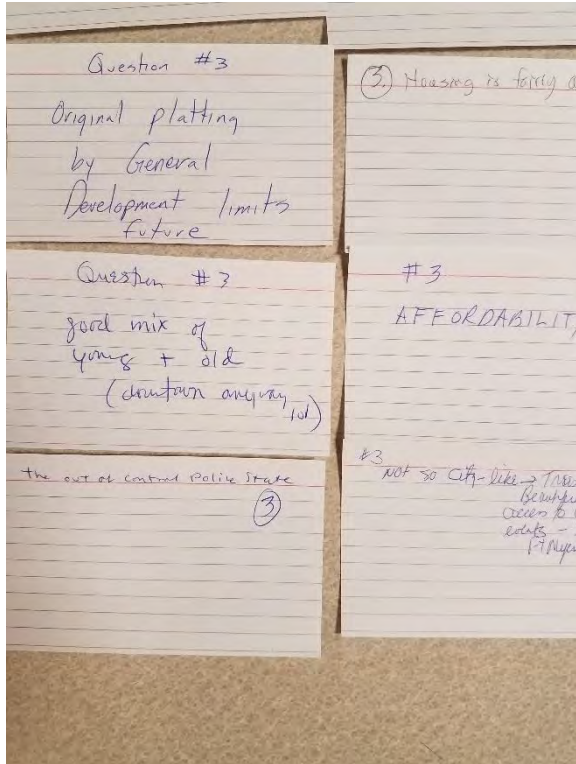 Question #3
Original platting
by General
Development limits
future
Question #3
good mix of
young + old
(downtown anyway
lol)
the out of control Police State
3
3. Housing is fairly
#3
AFFORDABILITY
#3
Not so City-like → 
access to
events -